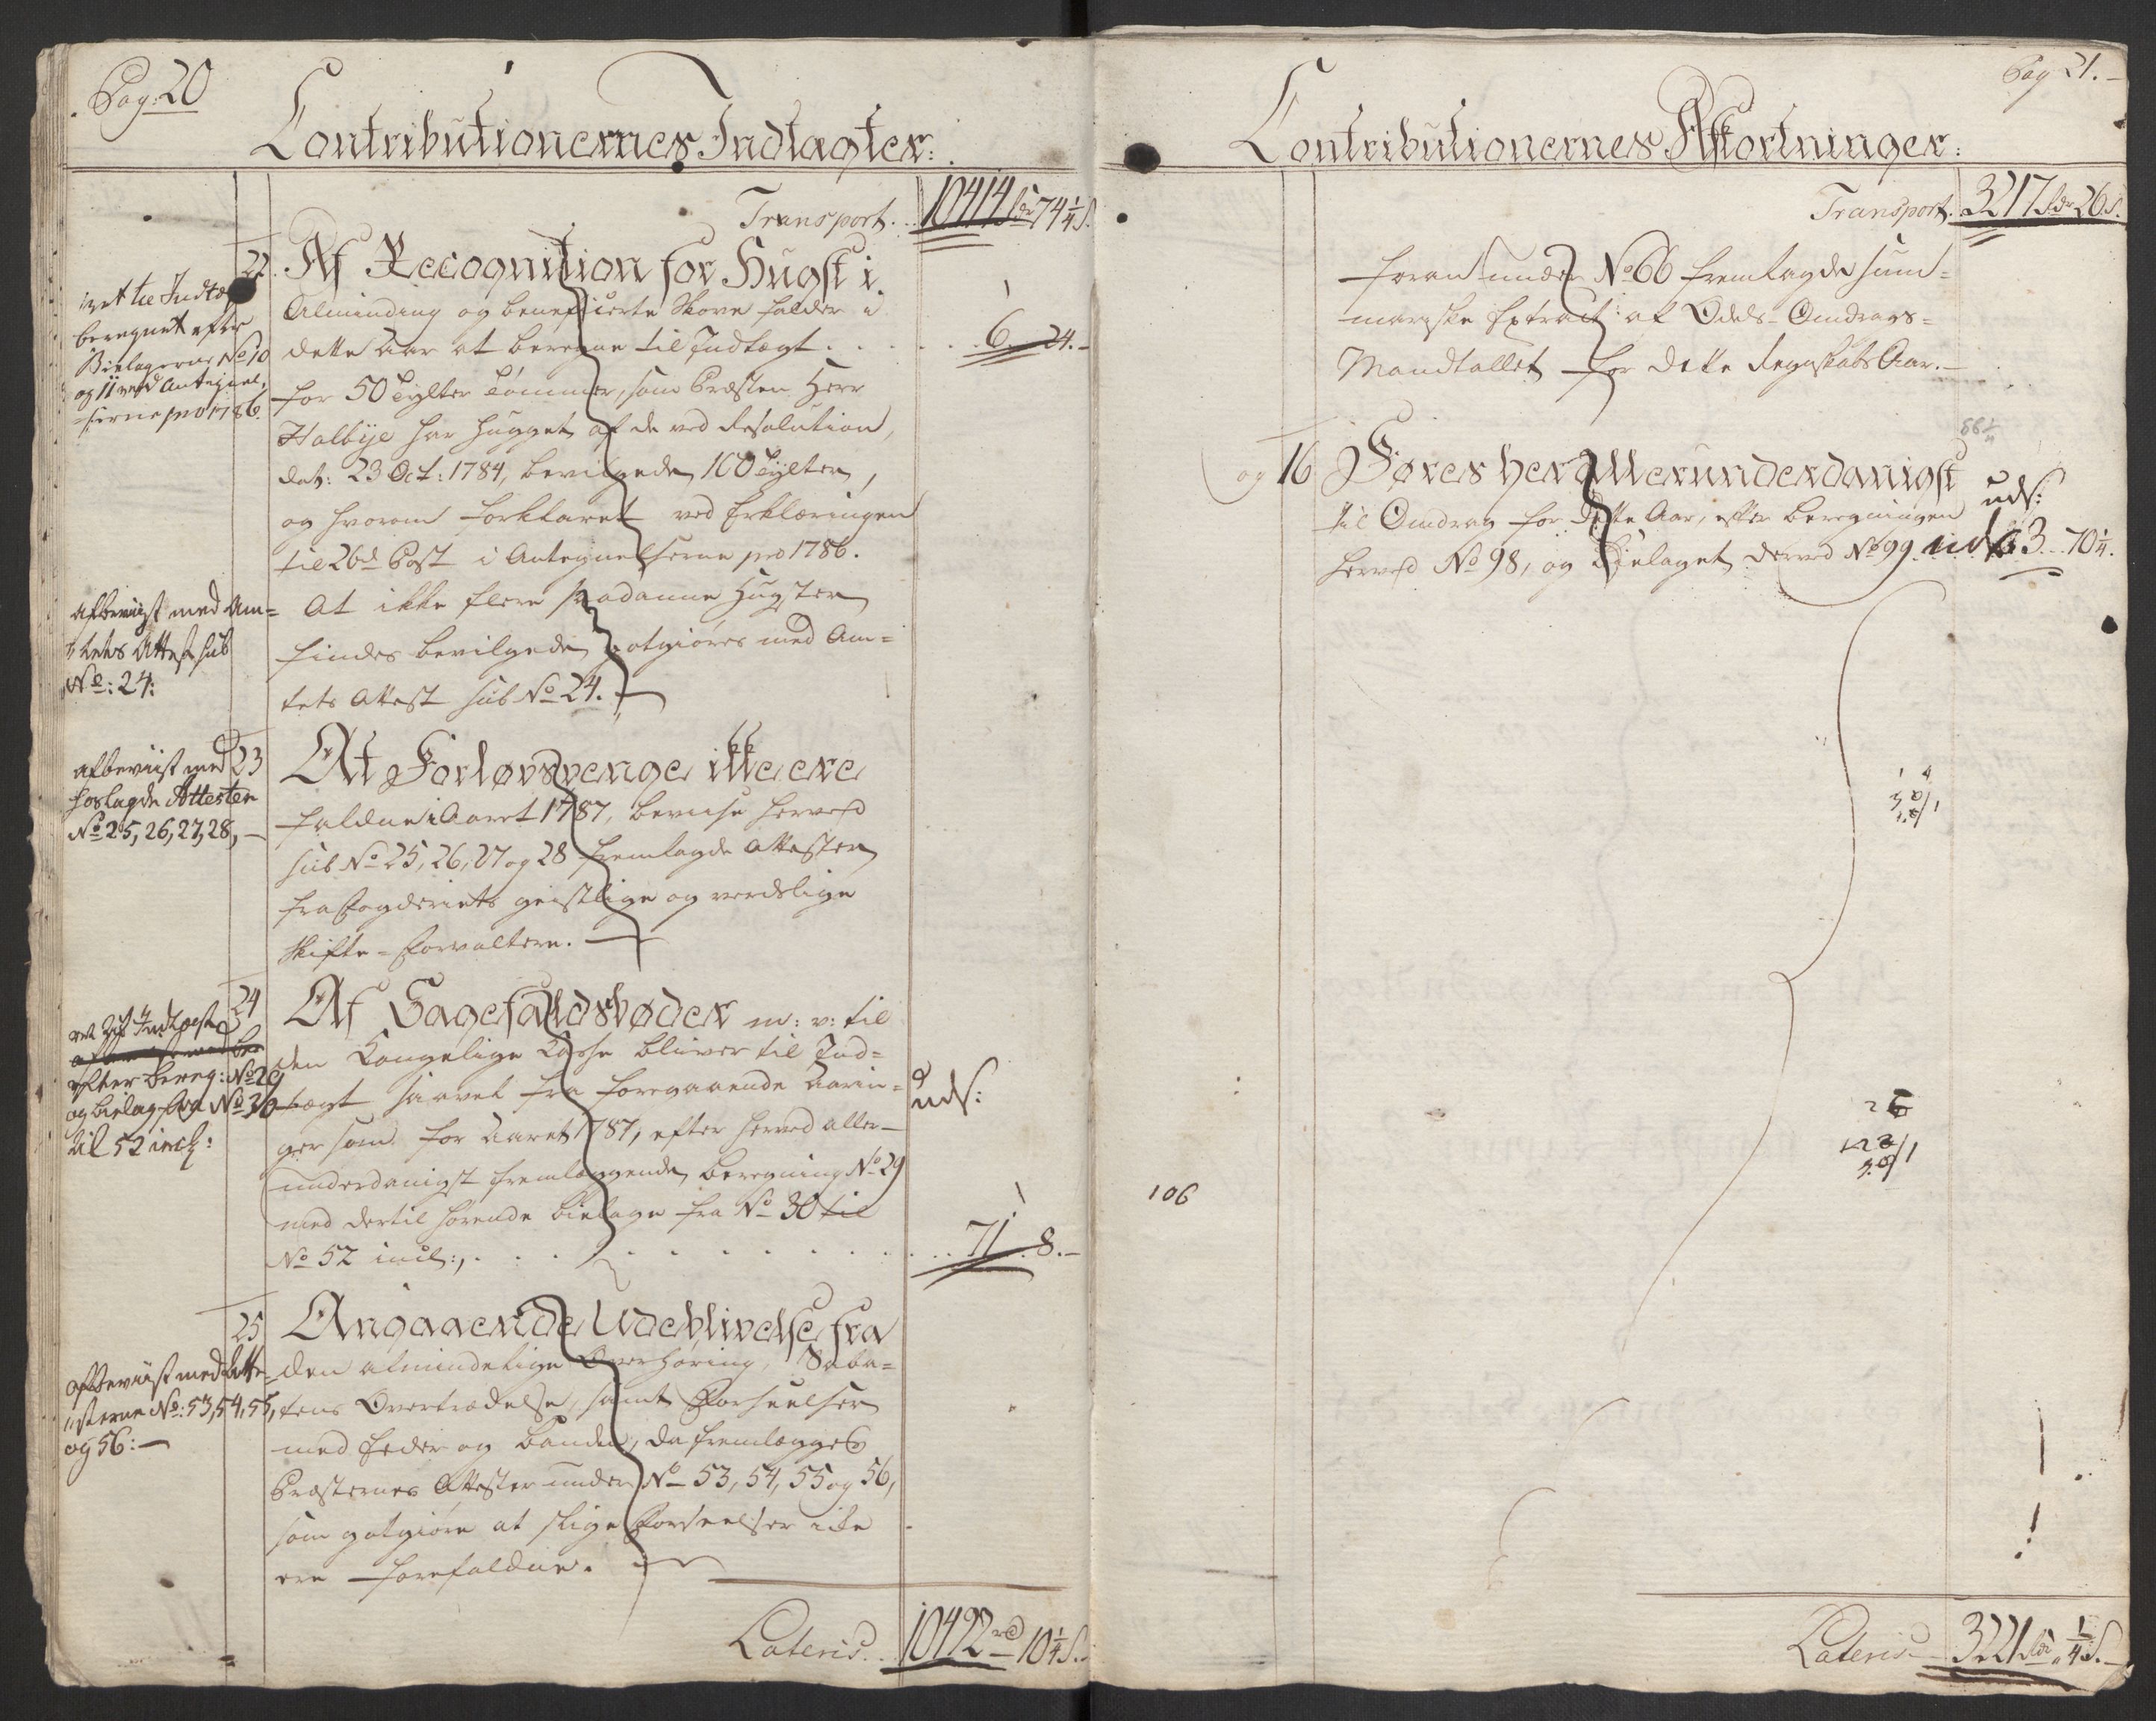 Pag: 20
Contributionernes Indtægter:
Transport. 10414 rdr 74 1/4 s.
22. Af Recognition for Hugst i
Alminding og beneficerte Skove falder i
dette Aar at beregne til Indtægt . . . 6. 24.-
for 50 Tylter Tømmer, som Præsten Herr
Halbye har hugget af de ved Resolution,
dat: 23 Oct: 1784, bevilgede 100 Tylter,
og hvorom forklaret ved Erklæringen
til 26d Post i Antegnelserne pro 1786.
At ikke flere saadanne Hugster
findes bevilgede, gotgiøres med Am=
tets Attest sub No 24.
til Indtægt
beregnet efter
Bielagerne No 10
og 11 ved Antegnel,
=serne pro 1786.
afbeviist med Am=
tets Attest sub
No: 24:
23 At Forlovsvenge ikke ere
faldne i Aaret 1787, bevises herved
sub No 25, 26, 27 og 28 fremlagde Attester
fra Fogderiets geistlige og verdslige
Skifte=Forvaltere.
afbeviist med
hoslagde Attester
No 25, 26, 27, 28, —
24 Af Sagefaldsbøder m: v: til
den Kongelige Casse bliver til Ind=
tægt saavel fra foregaaende Aarin=
ger som for Aaret 1787, efter herved aller=
underdanigst fremlæggende Beregning No 29
med dertil hørende Bielage fra No 30 til
No 52 incl:, . . . 71. 8.-
uds:
efter Bereg: No 29
og bielag fra No 30
til 52 incl:
25 Angaaende Udeblivelse fra
den almindelige Overhøring, Saba=
tens Overtrædelse, samt Forseelser
med Eeder og Banden, da fremlægges
Præsternes Attester under No 53, 54, 55 og 56,
som gotgiøre at slige Forseelser ikke
ere forefaldne.
afbeviist med Atte=
sterne No: 53, 54, 55,
og 56: —
Lateris. 10492 rd 10 1/4 s.
Pag 21.-
Contributionernes Afkortninger:
Transport. 3217 rdr 26 s.
foran under No 66 fremlagde sum=
mariske Extract af Odels-Omdrags=
Mandtallet for dette Regnskabs Aar.—
og 16 Føres her Allerunderdanigst
til Omdrag for dette Aar, efter Beregningen
herved No 98, og Bielaget derved No 99. uds 3. 70 1/4.
uds:
106
Lateris 3221 rdr " 1/4 s.